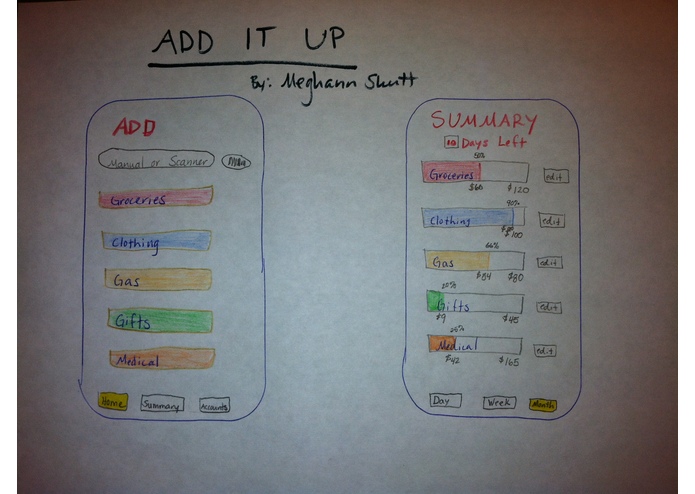 ADD IT UP
By: Meghann Shutt
ADD
Manual or Scanner
Groceries
Clothing
Gas
Gifts
Medical
Home Summary Accounts
SUMMARY
10 Days Left
50%
Groceries edit
$60 $120
90%
Clothing edit
$100
66%
Gas edit
$54 $80
20%
Gifts edit
$9 $45
25%
Medical edit
$42 $165
Day Week Month